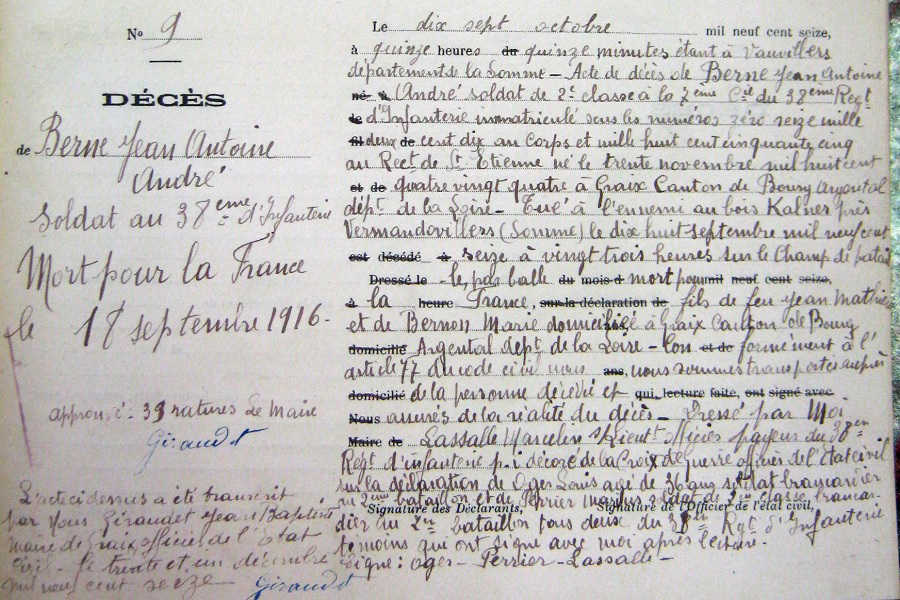 No 9
DÉCÈS
de Berne Jean Antoine
André
Soldat au 38eme d'Infanterie
Mort pour la France
le 18 septembre 1916-
approuvé 39 ratures Le Maire
Giraudet
L'acte ci dessus a été transcrit
par Nous Giraudet Jean Baptiste
Maire de Graix officier de l'Etat
Civil - le trente et un décembre
mil neuf cent seize Giraudet
Le dix sept octobre mil neuf cent seize,
à quinze heures du quinze minutes étant à Vauvillers
département de la Somme - Acte de décès de Berne Jean Antoine
né à (André soldat de 2e classe à la 7ème Cie du 38eme Regt
le d'Infanterie immatriculé sous les numéros zéro seize mille
et deux de cent dix au Corps et mille huit cent cinquante cinq
au Rect de St Etienne né le trente novembre mil huit cent
et de quatre vingt quatre à Graix Canton de Bourg Argental
dépt de la Loire - Tué à l'ennemi au bois Kalner près
Vermandovillers (Somme) le dix huit septembre mil neuf cent
est décédé à seize à vingt trois heures sur le Champ de
Dressé le - du mois d mort pour mil neuf cent seize,
à la heure France, sur la déclaration de fils de feu Jean Mathieu
et de Bernon Marie domicilié à Graix Canton de Bourg
domicilié Argental dept de la Loire - Con et de formément à l'
article 77 du code civil nous ans, nous sommes transportés auprès
domicilié de la personne décédée et qui, lecture faite, ont signé avec
Nous assurés de la réalité du décès - Dressé par Moi
Maire de Lassalle Marcelin s/Lieutt officier payeur du 38em
Regt d'infanterie p.i décoré de la Croix de Guerre officier de l'Etat civil
sur la déclaration de Oger Louis agé de 36 ans soldat brancardier
au 2eme bataillon et de Perrier Marius soldat de 2me classe brancar-
Signature des Déclarants, Signature de l'Officier de l'état civil,
dier au 2me bataillon tous deux du 38em Regt d'Infanterie
témoins qui ont signé avec moi après lecture.
Signé: Oger - Perrier - Lassalle -